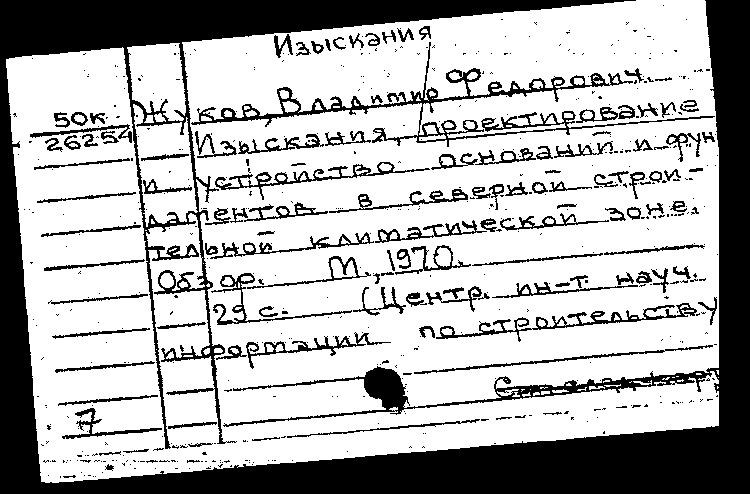 Изыскания
50к Жуков, Владимир Федорович.
26254 Изыскания, проектирование
и устройство оснований и фун
даментов в северной строи-
тельной климатической зоне.
Обзор. М., 1970.
29 с. (Центр. ин-т науч.
информации по строительству
7